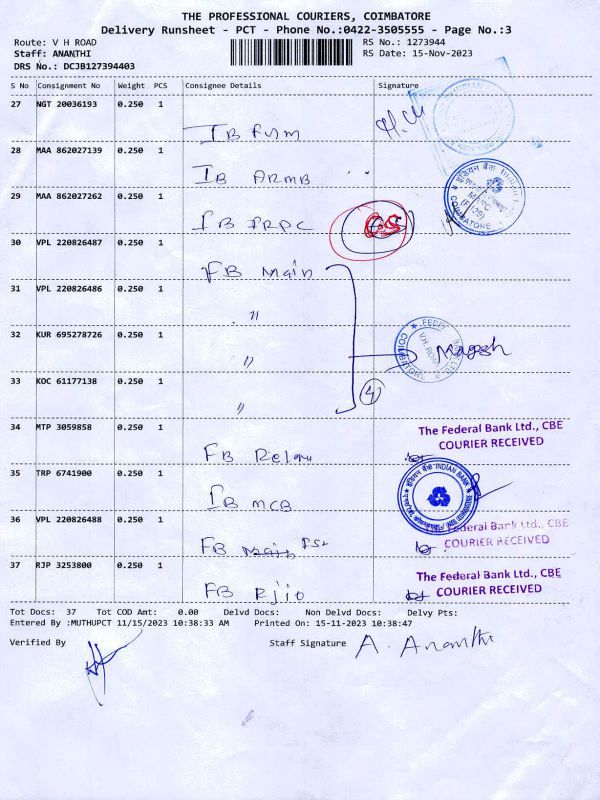 THE PROFESSIONAL COURIERS, COIMBATORE
Delivery Runsheet - PCT - Phone No.:0422-3505555 - Page No.:3
Route: V H ROAD RS No.: 1273944
Staff: ANANTHI RS Date: 15-Nov-2023
DRS No.: DCJB127394403
S No Consignment No Weight PCS Consignee Details Signature
27 NGT 20036193 0.250 1
IB
28 MAA 862027139 0.250 1
IB ARMB
29 MAA 862027262 0.250 1
IB PRPC
30 VPL 220826487 0.250 1
FB Main
31 VPL 220826486 0.250 1
"
32 KUR 695278726 0.250 1
" Magesh
33 KOC 61177138 0.250 1
" 4
34 MTP 3059858 0.250 1 The Federal Bank Ltd., CBE
COURIER RECEIVED
FB
35 TRP 6741900 0.250 1 INDIAN BANK
IB MCB
36 VPL 220826488 0.250 1 Federal Bank Ltd., CBE
COURIER RECEIVED
FB Main
37 RJP 3253800 0.250 1 The Federal Bank Ltd., CBE
COURIER RECEIVED
FB
Tot Docs: 37 Tot COD Amt: 0.00 Delvd Docs: Non Delvd Docs: Delvy Pts:
Entered By :MUTHUPCT 11/15/2023 10:38:33 AM Printed On: 15-11-2023 10:38:47
Verified By Staff Signature A. Ananthi